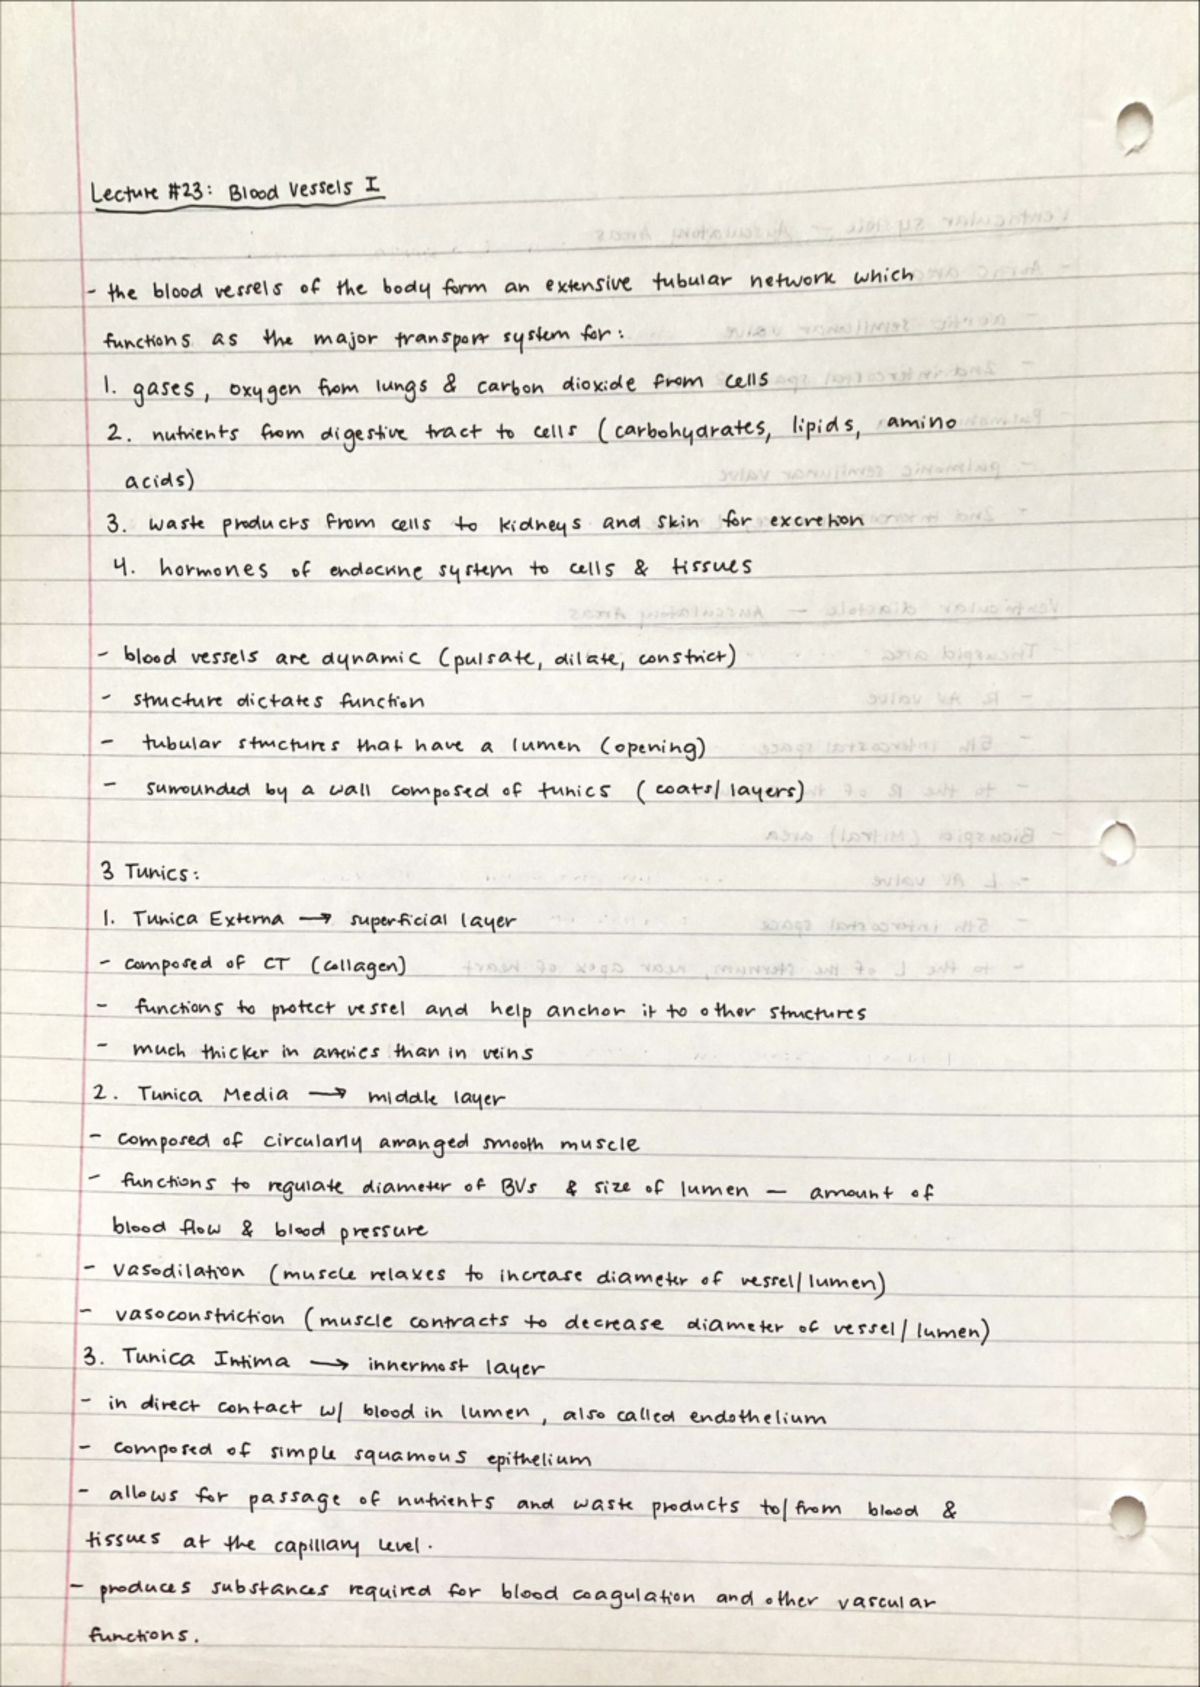 Lecture #23: Blood Vessels I
- the blood vessels of the body form an extensive tubular network which
functions as the major transport system for:
1. gases, oxygen from lungs & carbon dioxide from cells
2. nutrients from digestive tract to cells (carbohydrates, lipids, amino
acids)
3. waste products from cells to kidneys and skin for excretion
4. hormones of endocrine system to cells & tissues
- blood vessels are dynamic (pulsate, dilate, constrict)
- structure dictates function
- tubular structures that have a lumen (opening)
- surrounded by a wall composed of tunics (coats/layers)
3 Tunics:
1. Tunica Externa → superficial layer
- composed of CT (collagen)
- functions to protect vessel and help anchor it to other structures
- much thicker in arteries than in veins
2. Tunica Media → middle layer
- composed of circularly arranged smooth muscle
- functions to regulate diameter of BVs & size of lumen — amount of
blood flow & blood pressure
- vasodilation (muscle relaxes to increase diameter of vessel/lumen)
- vasoconstriction (muscle contracts to decrease diameter of vessel/lumen)
3. Tunica Intima → innermost layer
- in direct contact w/ blood in lumen, also called endothelium
- composed of simple squamous epithelium
- allows for passage of nutrients and waste products to/from blood &
tissues at the capillary level.
- produces substances required for blood coagulation and other vascular
functions.